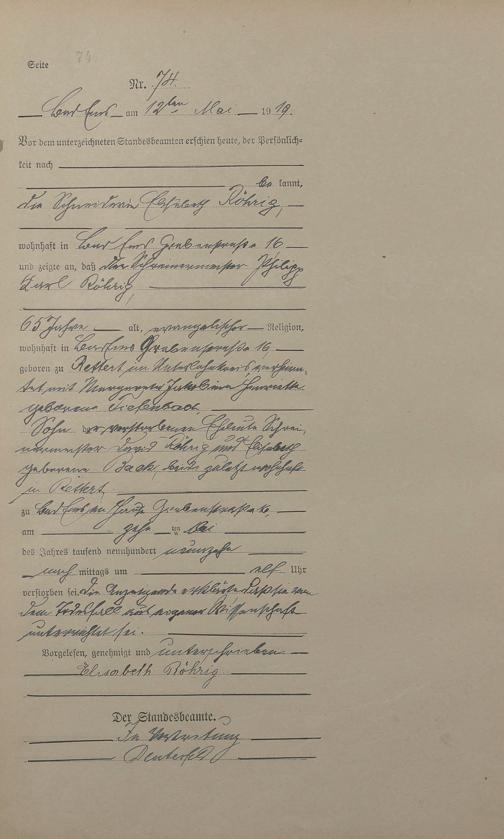 Seite 74
Nr. 74.
Bad Ems am 12ten Mai 1919.
Vor dem unterzeichneten Standesbeamten erschien heute, der Persönlich-
keit nach
be kannt,
die Schneiderin Elisabeth Röhrig,
wohnhaft in Bad Ems Grabenstraße 16
und zeigte an, daß der Schreinermeister Philipp
Karl Röhrig,
65 Jahre alt, evangelischer Religion,
wohnhaft in Bad Ems Grabenstraße 16
geboren zu Rettert im Unterlahnkreis, verheira-
tet mit Margarete Jakobine Henriette
geborene Tiefenbach,
Sohn der verstorbenen Eheleute Schrei-
nermeister David Röhrig und Elisabeth
geborene beide zuletzt wohnhaft
in Rettert
zu Bad Ems im Hause Grabenstraße 16,
am ten Mai
des Jahres tausend neunhundert neunzehn
nach mittags um elf Uhr
verstorben sei. Die Anzeigende erklärte, daß sie von
dem Todesfall aus eigener Wissenschaft
unterrichtet sei.
Vorgelesen, genehmigt und unterschrieben
Elisabeth Röhrig
Der Standesbeamte.
In Vertretung